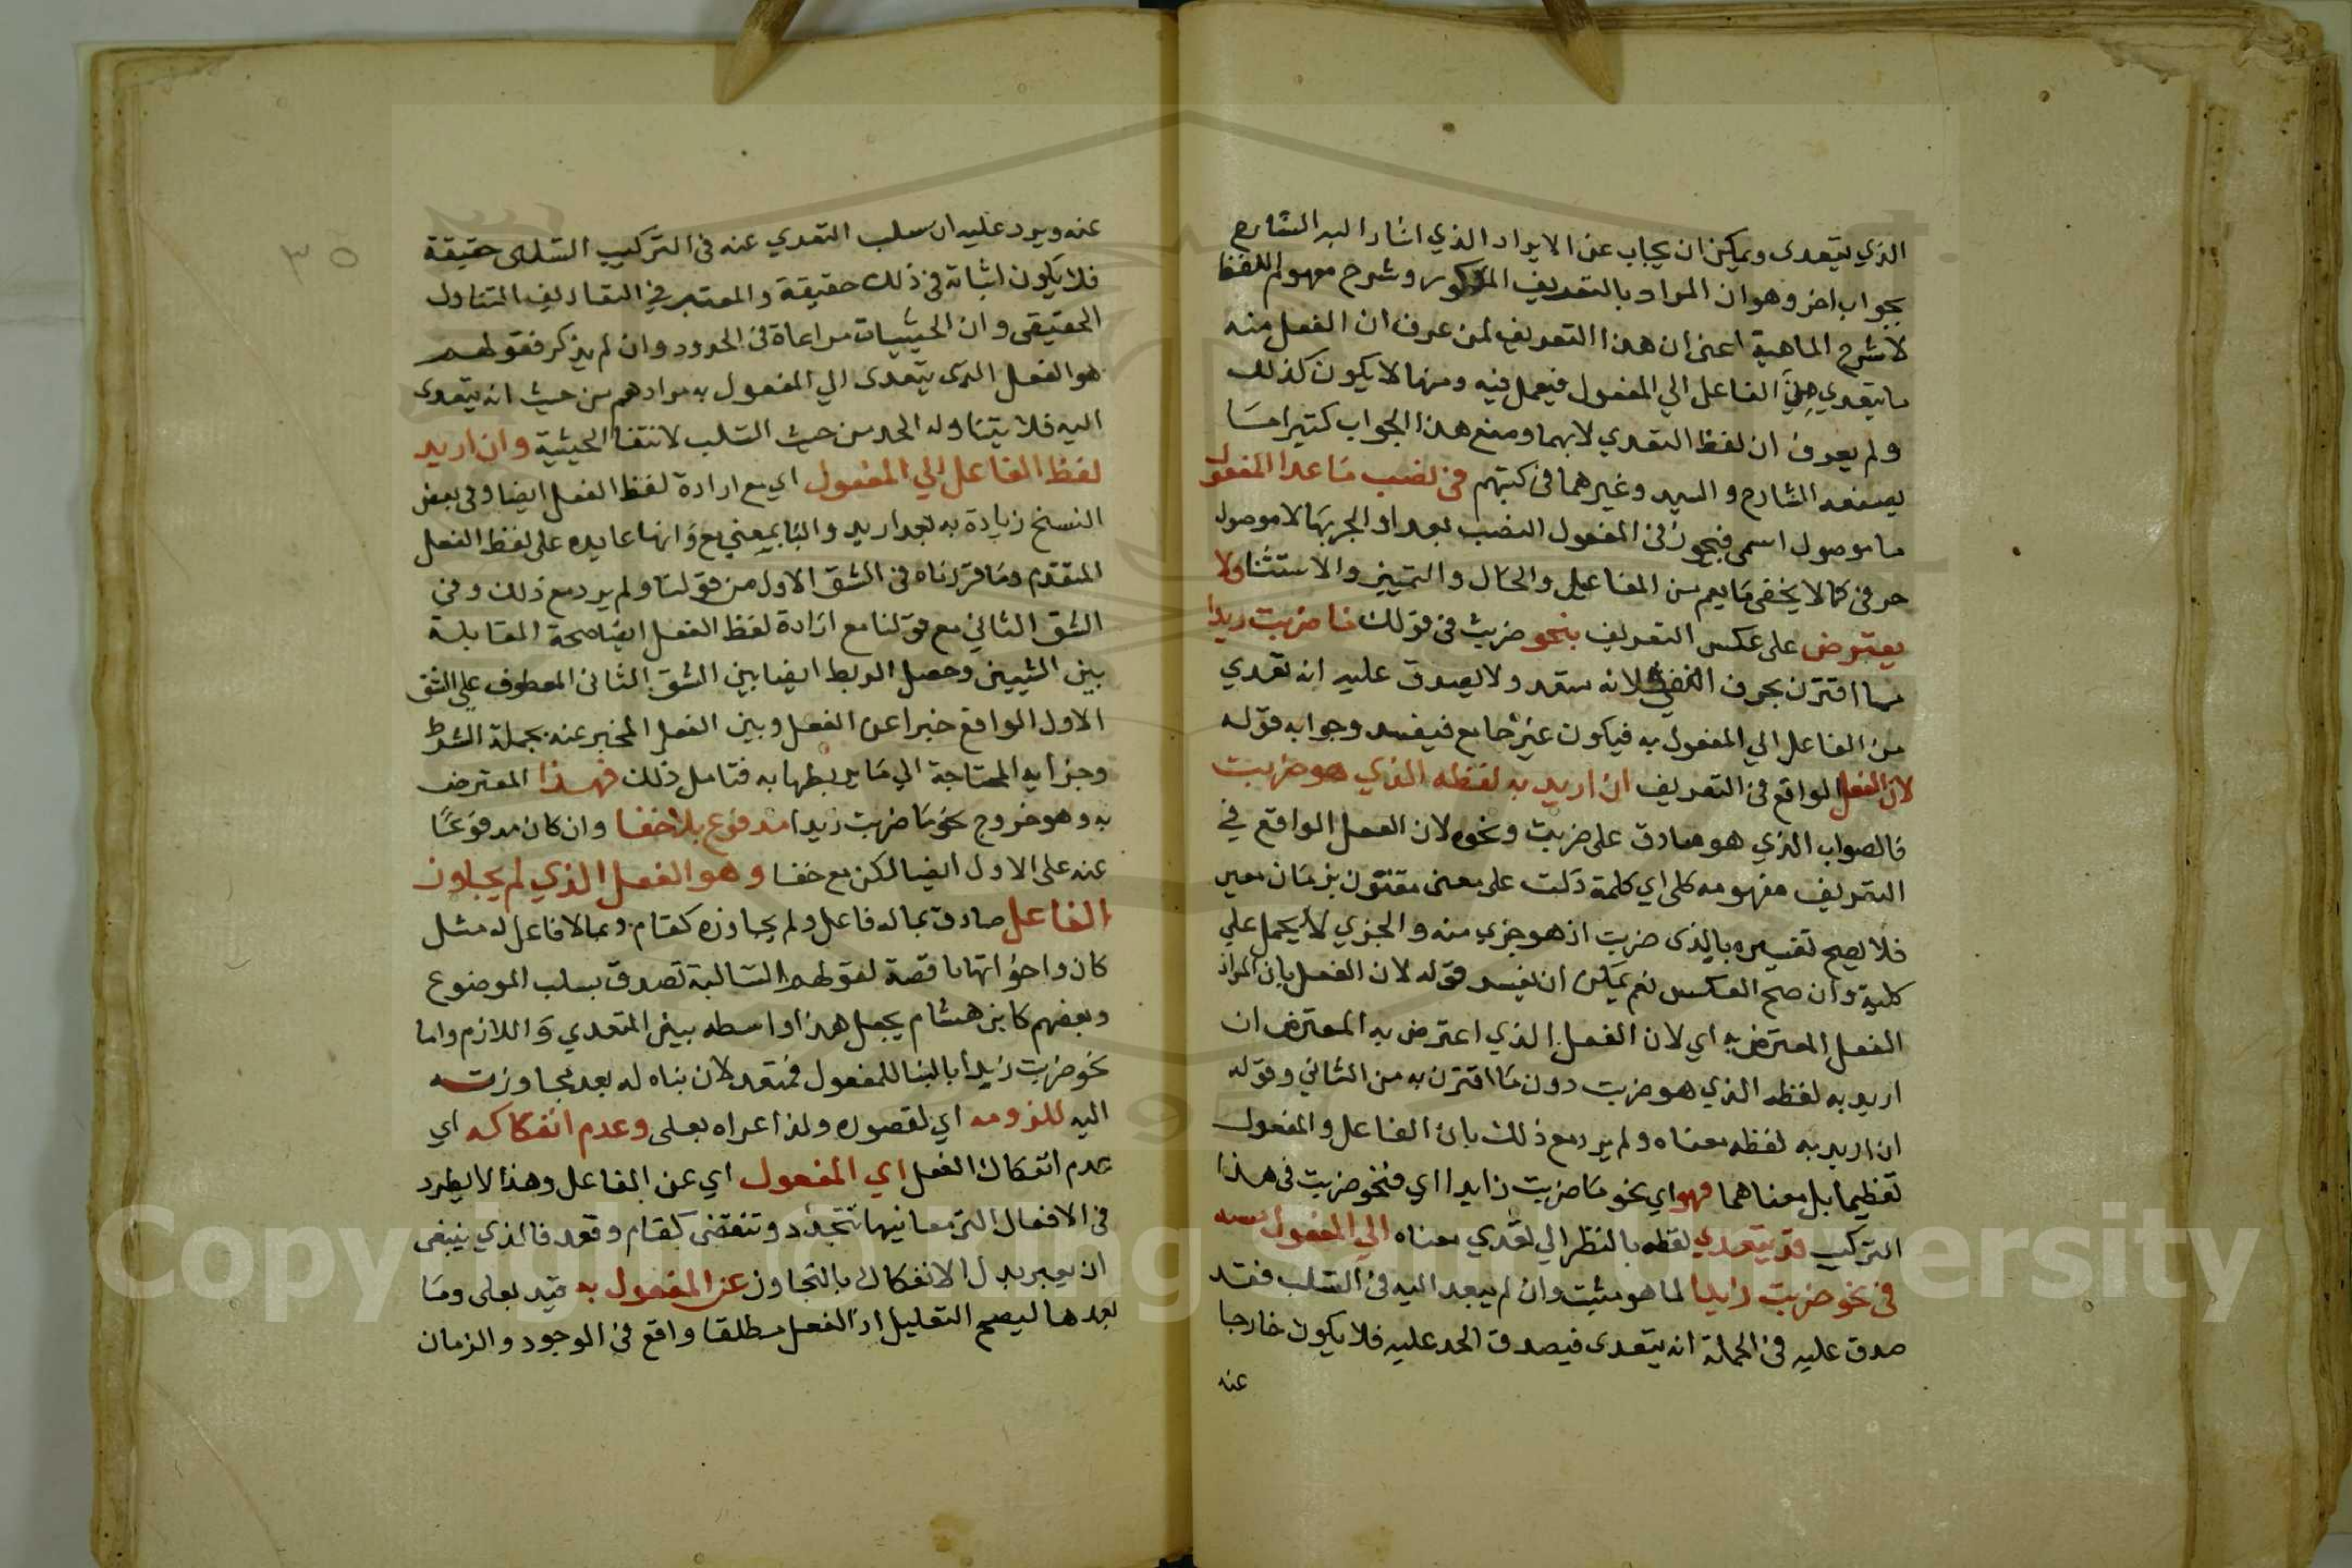 الذي يتعدى ويمكن ان يجاب عن الايراد الذي اشار اليه الشارح
بجواب اخر وهو ان المراد بالتعريف المذكور وشرح مفهوم اللفظ
لا شرح الماهية اعني ان هذا التعريف لمن عرف ان الفعل منه
ما يتعدي الفاعل الي المفعول فيعمل فيه ومنه ما لا يكون كذلك
ولم يعرف ان لفظ التعدي لايهما ومنع هذا الجواب كثيرا ما
يصنعه الشارح والسيد وغيرهما في كتبهم في نصب ما عدا المفعول
ما موصول اسمي فيجوز في المفعول النصب بعدا والجر بها لا موصول
حرفي كما لا يخفى ما يعم من المفاعيل والحال والتمييز والاستثنا ولا
يعترض على عكس التعريف بنحو ضربت في قولك ما ضربت زيدا
مما اقترن بحرف النفي لانه متعد ولا يصدق عليه انه تعدي
من الفاعل الي المفعول به فيكون غير جامع فيفسد وجوابه قوله
لان الفعل الواقع في التعريف ان اريد به لفظه الذي هو ضربت
فالصواب الذي هو صادق على ضربت ونحوه لان الفعل الواقع في
التعريف مفهومه كلي اي كلمة دلت على معنى مقترن بزمان معين
فلا يصح تفسيره بالذى ضربت اذ هو جزي منه والجزي لا يحمل علي
كليه وان صح العكس نعم يمكن ان يفسر قوله لان الفعل بان المراد
الفعل المعترض به اي لان الفعل الذي اعترض به المعترض ان
اريد به لفظه الذي هو ضربت دون ما اقترن به من الثاني وقوله
ان اريد به لفظه معناه ولم يرد مع ذلك بان الفاعل والمفعول
لفظيهما بل معناهما فهو اي نحو ما ضربت زايدا اي فنحو ضربت في هذا
التركيب قد يتعدي لفظه بالنظر الي تعدي معناه الي المفعول به
في نحو ضربت زيدا لما هو مثبت وان لم يعد اليه في السلب فقد
صدق عليه في الجملة انه يتعدى فيصدق الحد عليه فلا يكون خارجا
عنه
٣٥
عنه ويرد عليه ان سلب التعدي عنه في التركيب السلبى حقيقة
فلا يكون اثباته في ذلك حقيقة والمعتبر في التعاريف المتناول
الحقيقى وان الحيثيات مراعاة في الحدود وان لم يذكر فقولهم
هو الفعل الذى يتعدى الي المفعول به مرادهم من حيث انه يتعدى
اليه فلا يتناوله الحد من حيث السلب لانتفا الحيثية وان اريد
لفظ الفاعل الي المفعول اي مع ارادة لفظ الفعل ايضا وفي بعض
النسخ زيادة به بعد اريد والبا بمعني مع وانها عايده على لفظ الفعل
المتقدم وما قررناه في الشق الاول من قولنا ولم يرد مع ذلك وفي
الشق الثاني مع قولنا مع ارادة لفظ الفعل ايضا صحة المقابلة
بين الشيين وحصل الربط ايضا بين الشق الثانى المعطوف علي الشق
الاول الواقع خبرا عن الفعل وبين الفعل المخبر عنه بجملة الشرط
وجزايه المحتاجة الي ما يربطها به فتامل ذلك فهذا المعترض
به وهو خروج نحو ما ضربت زيدا مدفوع بلا خفا وان كان مدفوعا
عنه على الاول ايضا لكن مع خفا وهو الفعل الذي لم يجاوز
الفاعل صادق بما له فاعل ولم يجاوزه كقام وبما لا فاعل له مثل
كان واخواتها ناقصة لقولهم السالبة تصدق بسلب الموضوع
وبعضهم كابن هشام يجعل هذا واسطه بين المتعدي واللازم واما
نحو ضربت زيدا بالبنا للمفعول فمتعد لان بناه له بعد مجاوزته
اليه للزومه اي لقصوره ولذا عداه بعلى وعدم انفكاكه اي
عدم انفكاك الفعل اي المفعول اي عن الفاعل وهذا لا يطرد
في الافعال التي معانيها تتجدد وتنقضى كقام وقعد فالذي ينبغى
ان يعبر بدل الانفكاك بالتجاوز عن المفعول به قيد بعلى وما
بعدها ليصح التعليل اذ الفعل مطلقا واقع في الوجود والزمان
Copyright © King Saud University